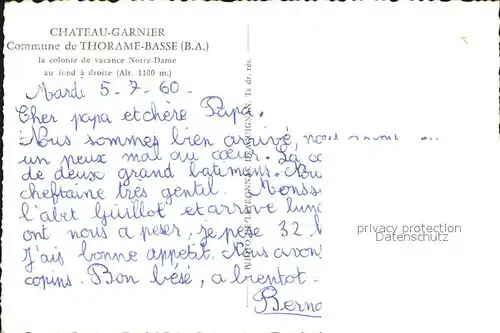 CHATEAU-GARNIER
Commune de THORAME-BASSE (B.A.)
la colonie de vacance Notre-Dame
au fond à droite (Alt. 1100 m.)
Mardi 5-7-60-
Cher papa et chère Papa.
Nous sommes bien arrivé, nous
un peux mal au cœur. La
de deux grand batimens. Nou
cheftaine très gentil. Monss
l'abet Guillot et arrive lun
ont nous a peser, je pèse 32
J'ais bonne appetit. Nous avon
copins. Bon bésé, a breptot-
Berna
Ts dr. rés.
privacy protection
Datenschutz